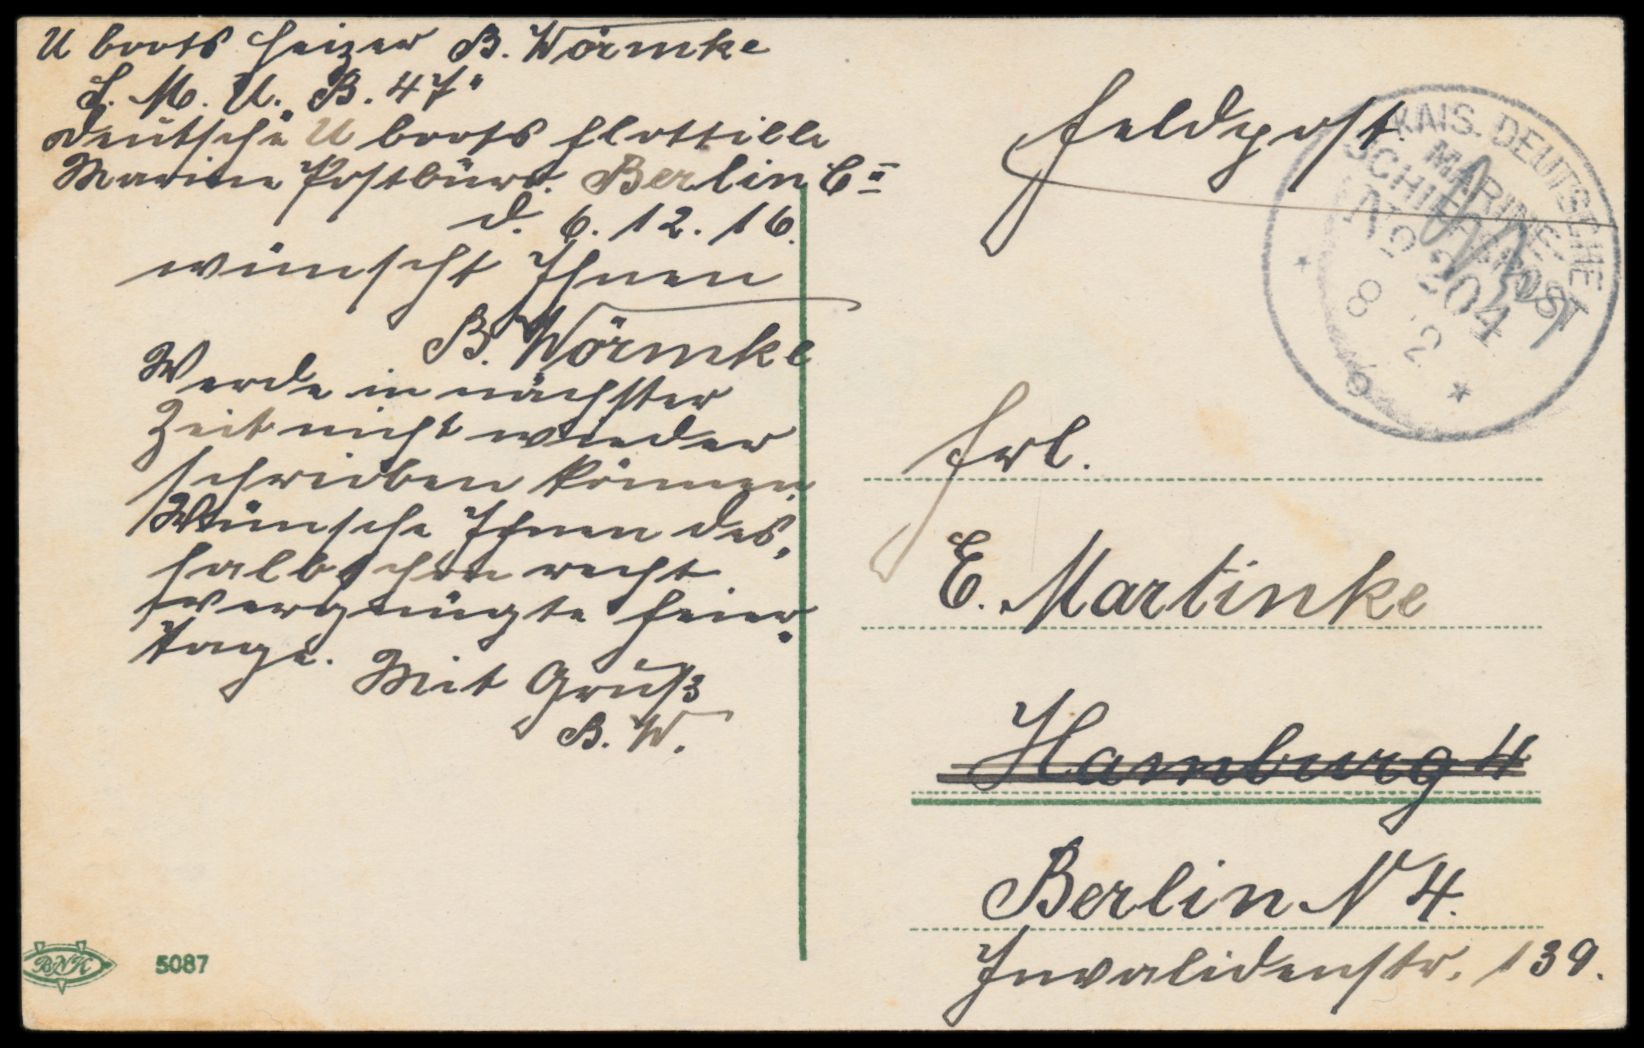 U boots heizer B. Wörmke
S. M. U. „B. 47"
Deutsche U boots flottille
Marine Postbüro. Berlin C"
d. 6. 12. 16.
wünscht Ihnen
B. Wörmke
Werde in nächster
Zeit nicht wieder
schreiben können
Wünsche Ihnen des,
halb schon recht
vergnügte Feier,
tage.
Mit Gruß
B. W.
Feldpost.
KAIS. DEUTSCHE
MARINE-
SCHIFFSPOST
No 204
8 12
6
Frl.
E. Martinke
Hamburg 4
Berlin N 4.
Invalidenstr. 139.
BNK
5087